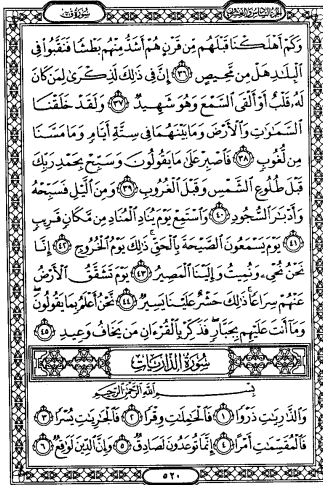 سُورَةُ قٓ الجزء السادس والعشرون
وَكَمْ أَهْلَكْنَا قَبْلَهُم مِّن قَرْنٍ هُمْ أَشَدُّ مِنْهُم بَطْشًا فَنَقَّبُوا۟ فِى
ٱلْبِلَٰدِ هَلْ مِن مَّحِيصٍ ٣٦ إِنَّ فِى ذَٰلِكَ لَذِكْرَىٰ لِمَن كَانَ
لَهُۥ قَلْبٌ أَوْ أَلْقَى ٱلسَّمْعَ وَهُوَ شَهِيدٌ ٣٧ وَلَقَدْ خَلَقْنَا
ٱلسَّمَٰوَٰتِ وَٱلْأَرْضَ وَمَا بَيْنَهُمَا فِى سِتَّةِ أَيَّامٍ وَمَا مَسَّنَا
مِن لُّغُوبٍ ٣٨ فَٱصْبِرْ عَلَىٰ مَا يَقُولُونَ وَسَبِّحْ بِحَمْدِ رَبِّكَ
قَبْلَ طُلُوعِ ٱلشَّمْسِ وَقَبْلَ ٱلْغُرُوبِ ٣٩ وَمِنَ ٱلَّيْلِ فَسَبِّحْهُ
وَأَدْبَٰرَ ٱلسُّجُودِ ٤٠ وَٱسْتَمِعْ يَوْمَ يُنَادِ ٱلْمُنَادِ مِن مَّكَانٍ قَرِيبٍ
٤١ يَوْمَ يَسْمَعُونَ ٱلصَّيْحَةَ بِٱلْحَقِّ ۚ ذَٰلِكَ يَوْمُ ٱلْخُرُوجِ ٤٢ إِنَّا
نَحْنُ نُحْىِۦ وَنُمِيتُ وَإِلَيْنَا ٱلْمَصِيرُ ٤٣ يَوْمَ تَشَقَّقُ ٱلْأَرْضُ
عَنْهُمْ سِرَاعًا ۚ ذَٰلِكَ حَشْرٌ عَلَيْنَا يَسِيرٌ ٤٤ نَّحْنُ أَعْلَمُ بِمَا يَقُولُونَ ۖ
وَمَآ أَنتَ عَلَيْهِم بِجَبَّارٍ ۖ فَذَكِّرْ بِٱلْقُرْءَانِ مَن يَخَافُ وَعِيدِ ٤٥
سُورَةُ ٱلذَّارِيَاتِ
بِسْمِ ٱللَّهِ ٱلرَّحْمَٰنِ ٱلرَّحِيمِ
وَٱلذَّٰرِيَٰتِ ذَرْوًا ١ فَٱلْحَٰمِلَٰتِ وِقْرًا ٢ فَٱلْجَٰرِيَٰتِ يُسْرًا ٣
فَٱلْمُقَسِّمَٰتِ أَمْرًا ٤ إِنَّمَا تُوعَدُونَ لَصَادِقٌ ٥ وَإِنَّ ٱلدِّينَ لَوَٰقِعٌ ٦
٥٢٠